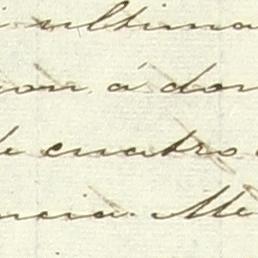 i ultima
ion á don
de cuatro
ncia. Me